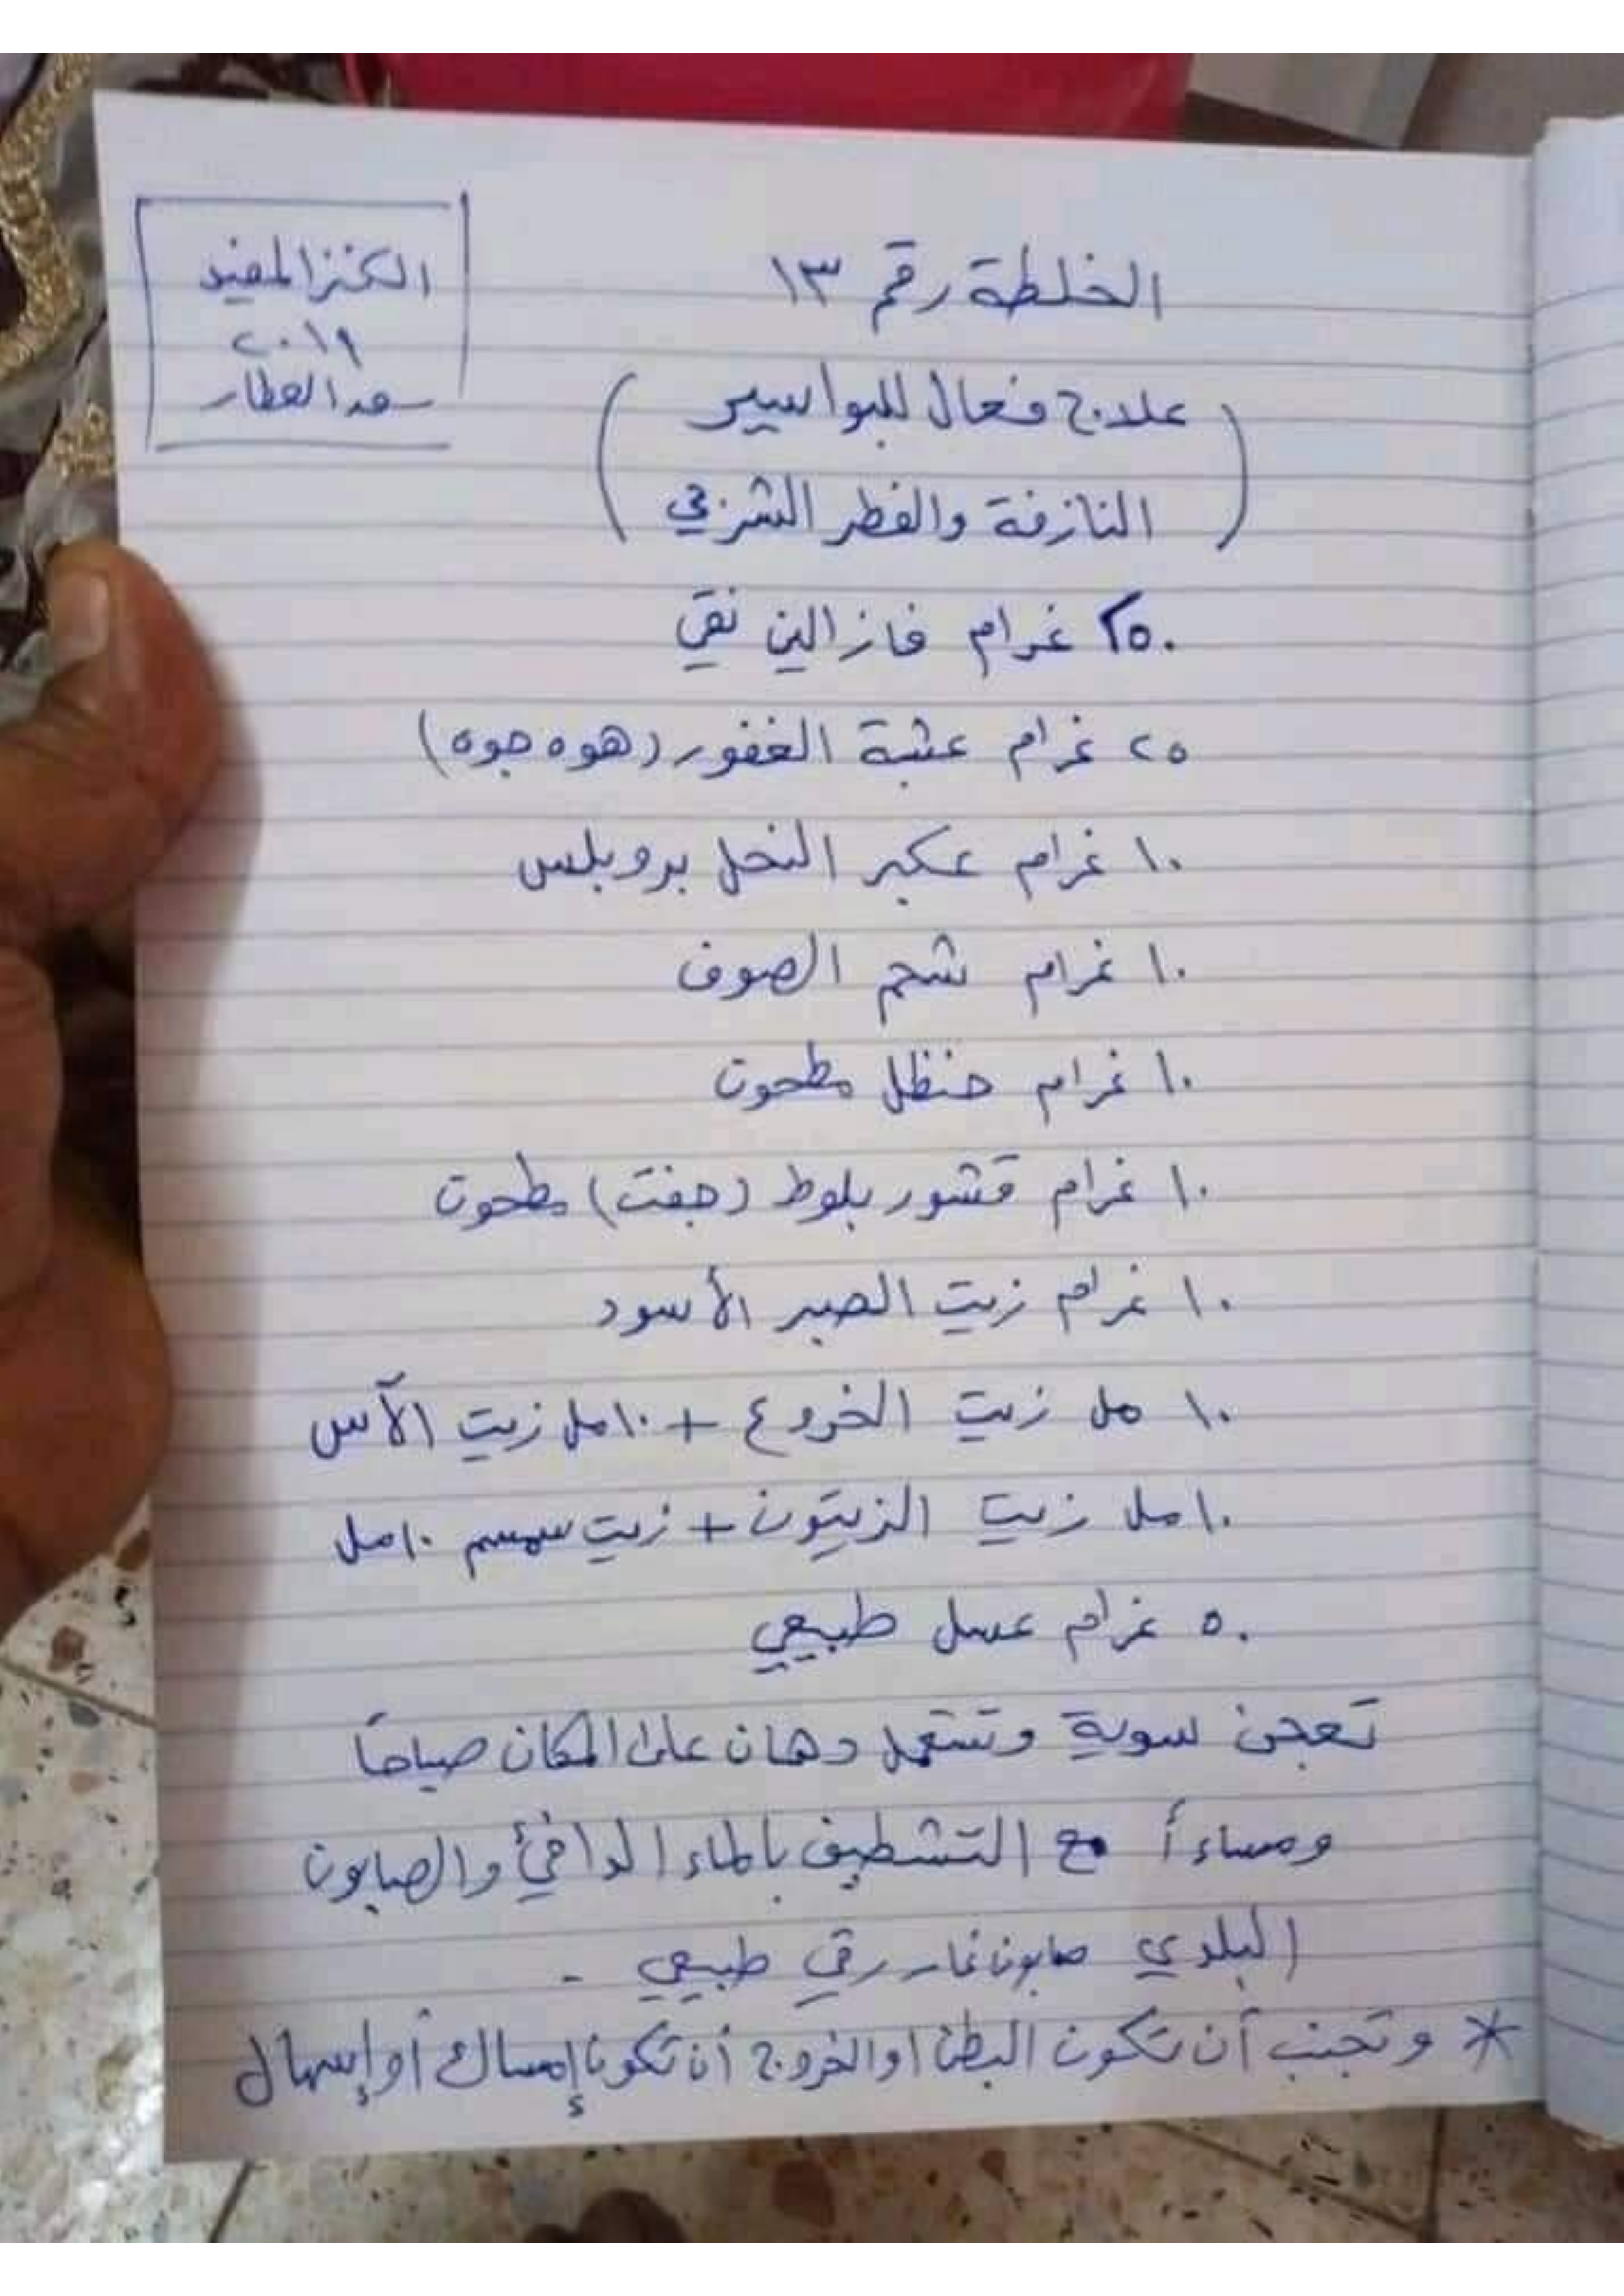 الخلطة رقم ١٣
الكنز المفيد
٢٠١٩
سعد العطار
(علاج فعال للبواسير
النازفة والفطر الشرجي)
٢٥٠ غرام فازالين نقي
٢٥ غرام عشبة الغفور (هوه جوه)
١٠ غرام عكبر النحل بروبلس
١٠ غرام شحم الصوف
١٠ غرام حنظل مطحون
١٠ غرام قشور بلوط (جفت) مطحون
١٠ غرام زيت الصبر الأسود
١٠ مل زيت الخروع + ١٠ مل زيت الآس
١٠ مل زيت الزيتون + زيت سمسم ١٠ مل
٥٠ غرام عسل طبيعي
تعجن سوية وتستعمل دهان على المكان صباحاً
ومساءاً مع التشطيف بالماء الدافئ والصابون
البلدي صابون غار رقي طبيعي -
* وتجنب أن تكون البطن او الخروج أن تكون إمساك أو إسهال